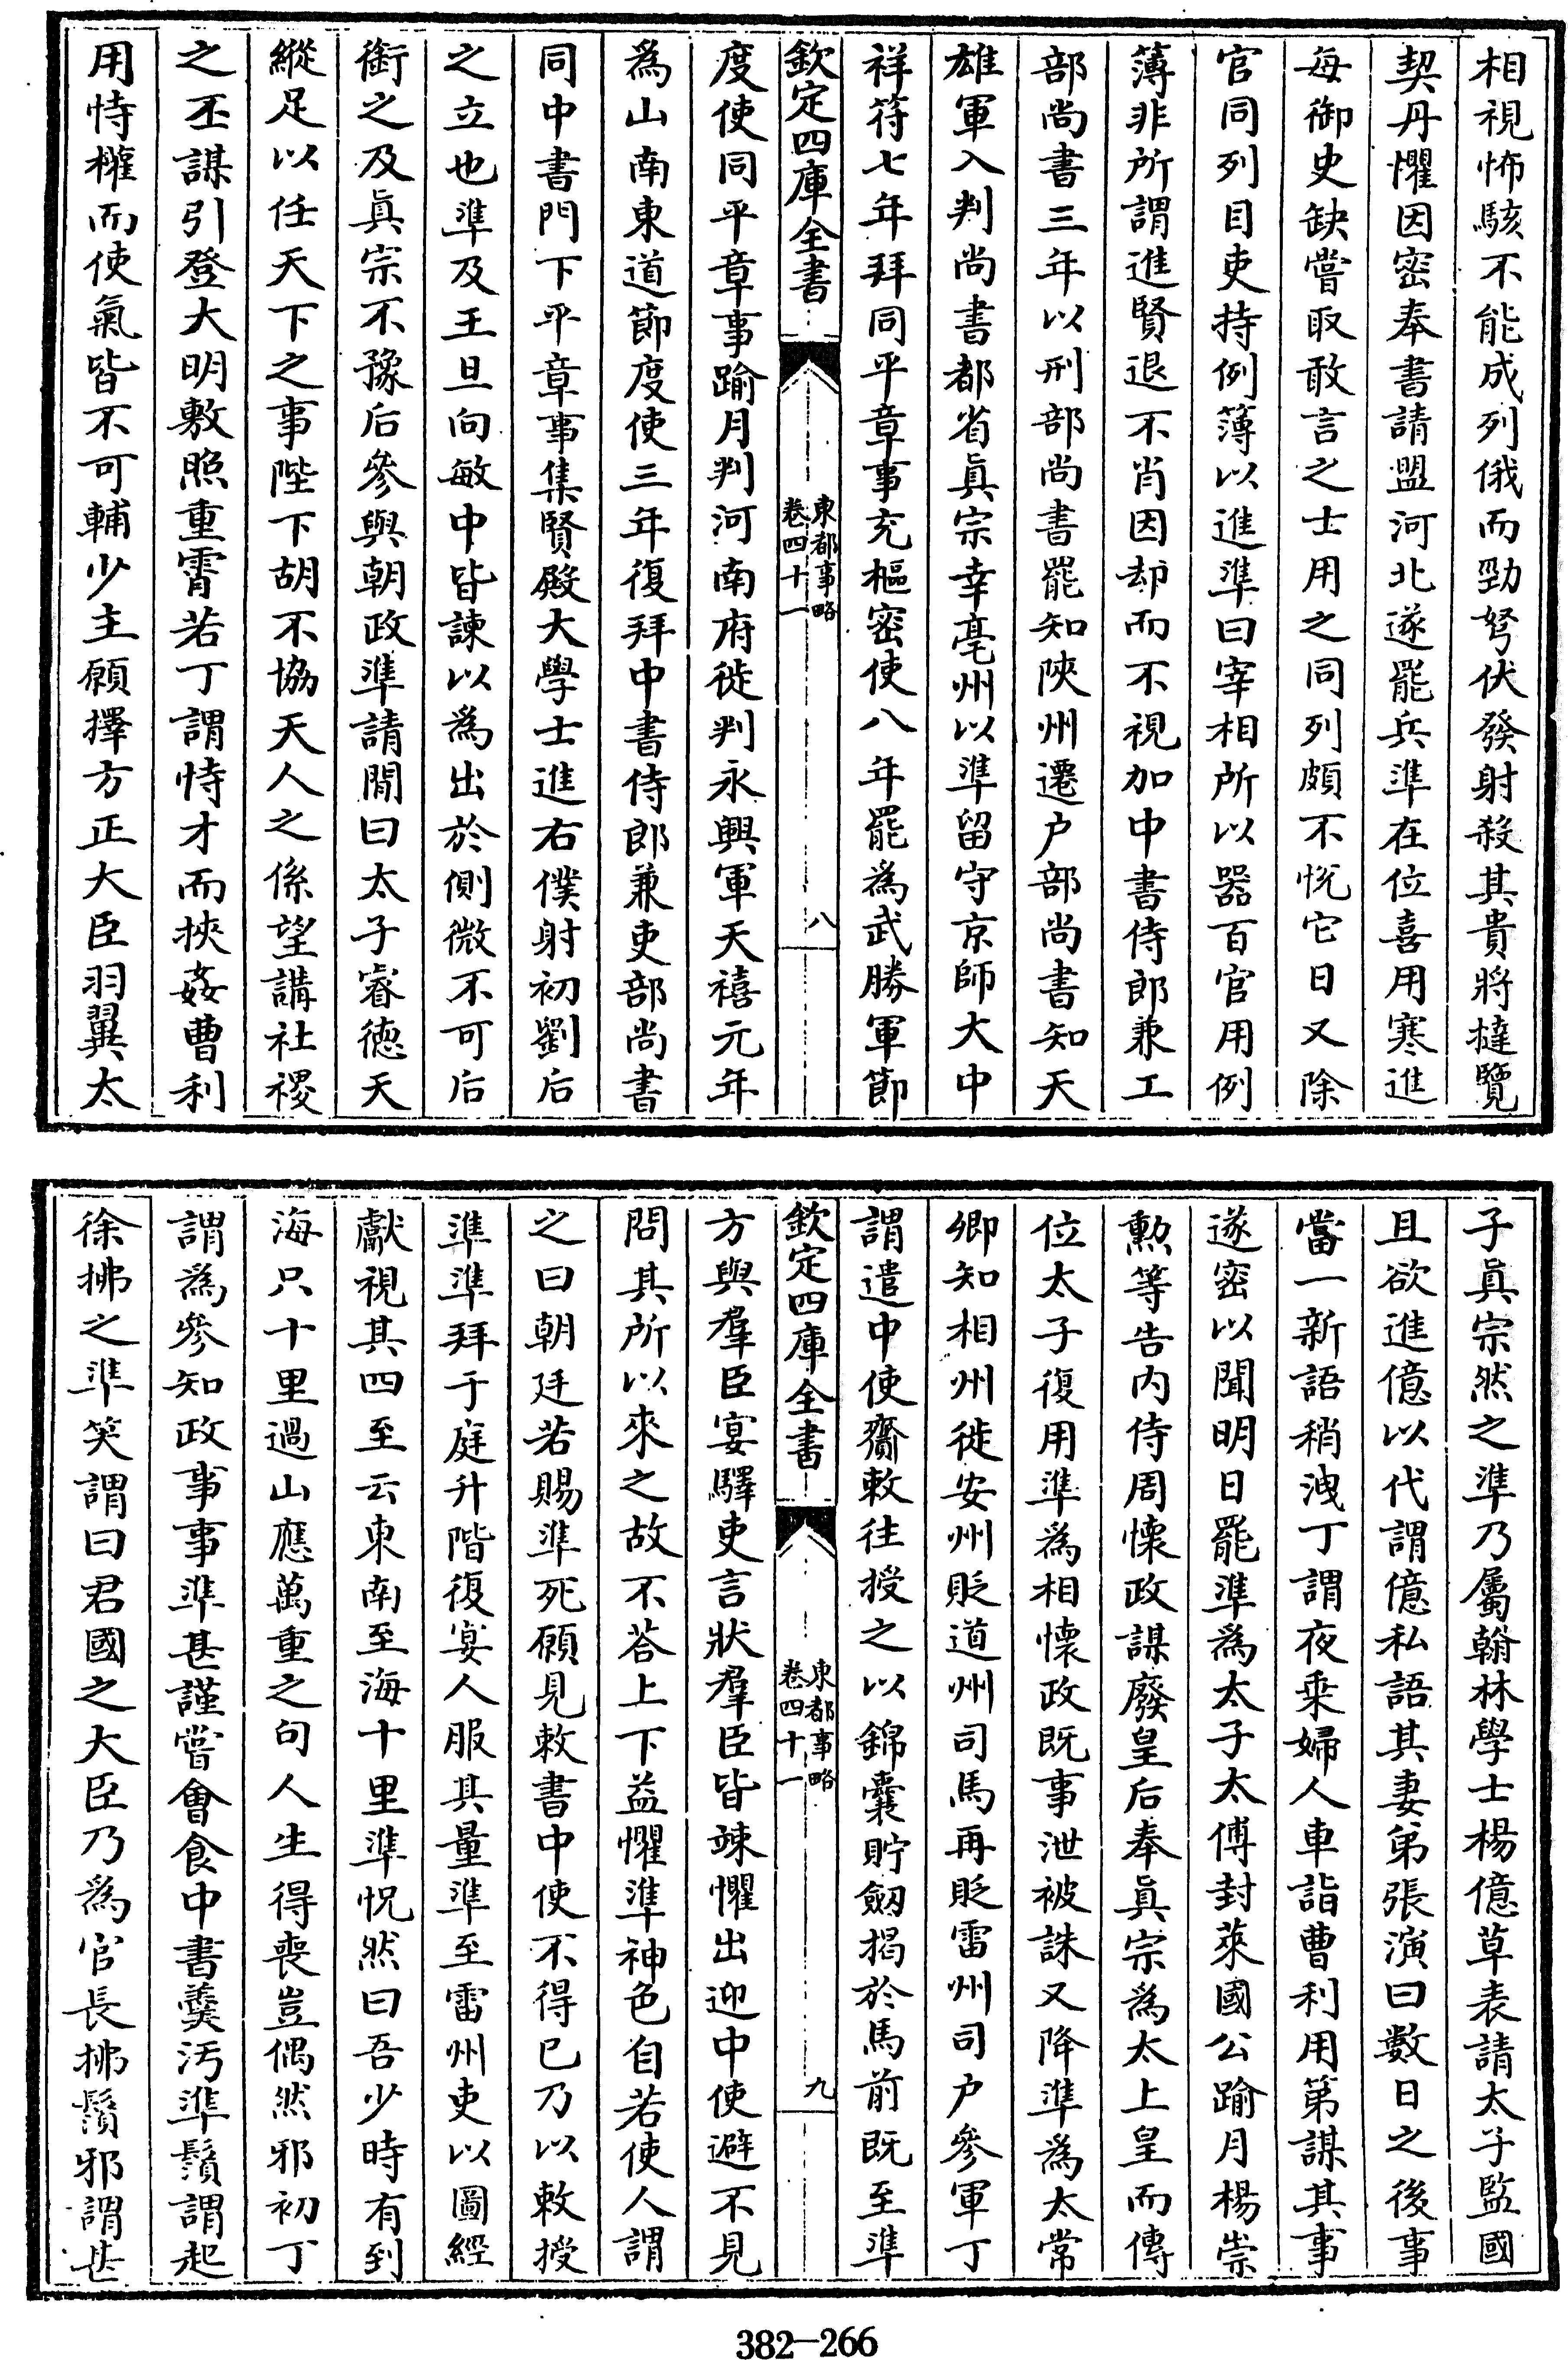 相視怖駭不能成列俄而勁弩伏發射殺其貴將撻覽
契丹懼因密奉書請盟河北遂罷兵準在位喜用寒進
每御史缺嘗取敢言之士用之同列頗不悅它日又除
官同列目吏持例簿以進準曰宰相所以器百官用例
薄非所謂進賢退不肖因却而不視加中書侍郎兼工
部尚書三年以刑部尚書罷知陜州遷户部尚書知天
雄軍入判尚書都省眞宗幸亳州以準留守京師大中
祥符七年拜同平章事充樞密使八年罷爲武勝軍節
欽定四庫全書
東都事略
卷四十一
八
度使同平章事踰月判河南府徙判永興軍天禧元年
爲山南東道節度使三年復拜中書侍郎兼吏部尚書
同中書門下平章事集賢殿大學士進右僕射初劉后
之立也準及王旦向敏中皆諫以爲出於側微不可后
銜之及眞宗不豫后參與朝政準請閒曰太子睿德天
縱足以任天下之事陛下胡不協天人之係望講社稷
之丕謀引登大明敷照重霄若丁謂恃才而挾姦曹利
用恃權而使氣皆不可輔少主願擇方正大臣羽翼太
子眞宗然之準乃屬翰林學士楊億草表請太子監國
且欲進億以代謂億私語其妻弟張演曰數日之後事
當一新語稍洩丁謂夜乘婦人車詣曹利用第謀其事
遂密以聞明日罷準爲太子太傅封萊國公踰月楊崇
勲等告内侍周懷政謀廢皇后奉眞宗爲太上皇而傳
位太子復用準爲相懷政既事泄被誅又降準爲太常
卿知相州徙安州貶道州司馬再貶雷州司户參軍丁
謂遣中使齎敕往授之以錦囊貯劔揭於馬前既至準
欽定四庫全書
東都事略
卷四十一
九
方與羣臣宴驛吏言狀羣臣皆竦懼出迎中使避不見
問其所以來之故不荅上下益懼準神色自若使人謂
之曰朝廷若賜準死願見敕書中使不得已乃以敕授
準準拜于庭升階復宴人服其量準至雷州吏以圖經
獻視其四至云東南至海十里準怳然曰吾少時有到
海只十里過山應萬重之句人生得喪豈偶然邪初丁
謂爲參知政事事準甚謹嘗會食中書羹汚準鬚謂起
徐拂之準笑謂曰君國之大臣乃爲官長拂鬚邪謂甚
382-266